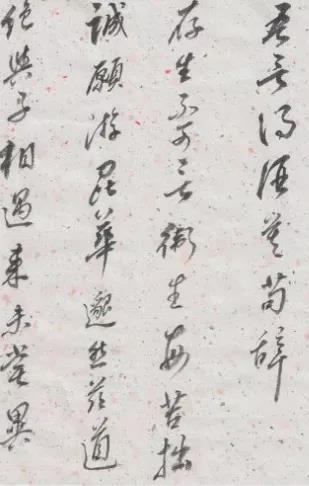 吾言得酒莫苟辭
存生不可言衛生每苦拙
誠願游昆華邈然茲道
絕與子相遇來未嘗異